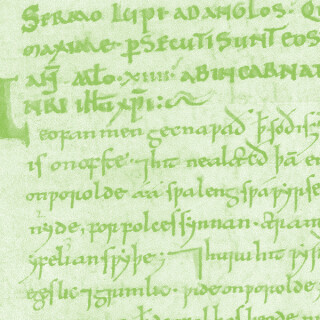 Sermo Lupi ad Anglos. Q
maxime. p̄secuti sunt eos
an̄. m̄lo. xiiii. ab incarnat
nr̄i ih̄u xp̄i:
Leofan men gecnaƿað ꝥ soð is
is on ofste ⁊ hit nealæcð þā en
on ƿorolde aa sƿa leng sƿa ƿyrse
nyde, for folces synnan
yfelian sƿyþe ⁊ huru hit ƿyr
egeslic ⁊ grimlic. ƿide on ƿorolde